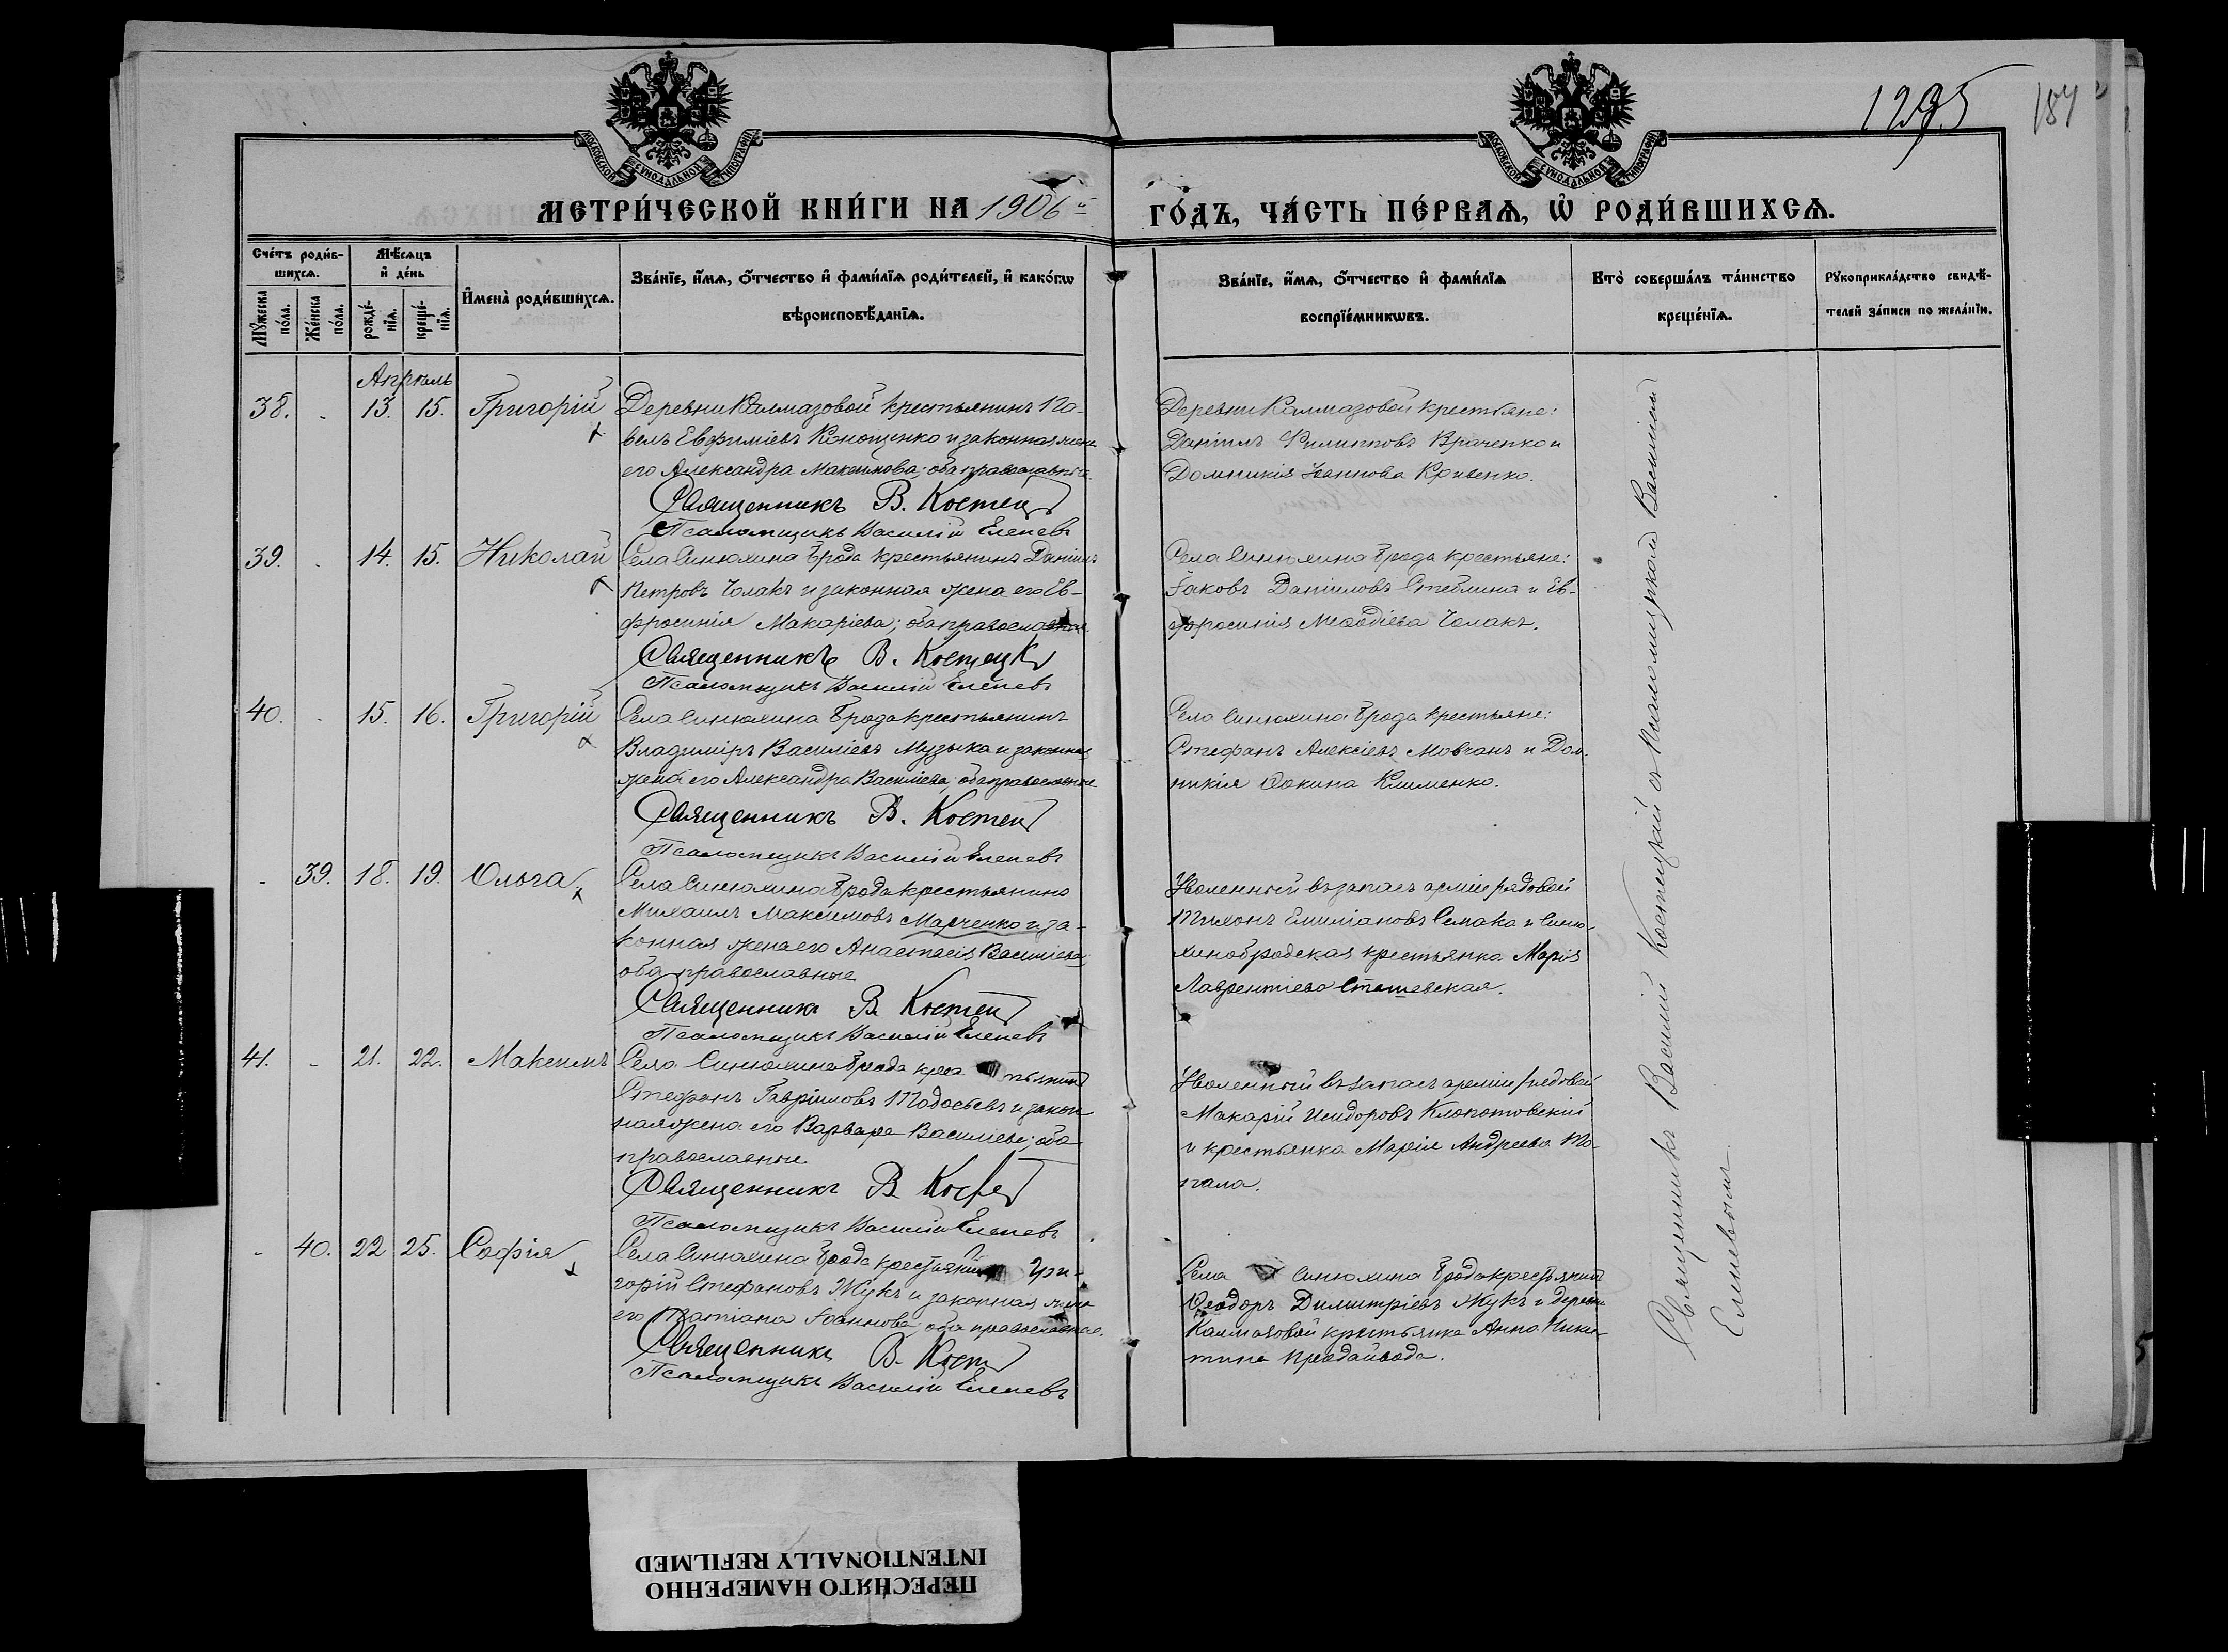 1295
187
МОСКОВСКОЙ СѴНОДАЛЬНОЙ ТИПОГРАФІИ
МОСКОВСКОЙ СѴНОДАЛЬНОЙ ТИПОГРАФІИ
МЕТРИ́ЧЕСКОЙ КНИ́ГИ НА 1906й
ГО́ДЪ, ЧА́СТЬ ПЕ́РВАѦ, Ѡ҆ РОДИ́ВШИХСѦ.
Сче́тъ роди́в-
шихсѧ.
Мꙋ́жеска по́ла.
Же́нска по́ла.
Мѣ́сѧцъ
и҆ де́нь
рожде́-
нїѧ.
креще́-
нїѧ.
И҆мена̀ роди́вшихсѧ.
Зва́нїе, и҆́мѧ, ѻ҆́тчество и҆ фами́лїѧ роди́телей, и҆ како́гѡ
вѣроисповѣ́данїѧ.
Зва́нїе, и҆́мѧ, ѻ҆́тчество и҆ фами́лїѧ
воспрїе́мникѡвъ.
Кто̀ соверша́лъ та́инство
креще́нїѧ.
Рꙋкоприкла́дство свидѣ́-
телей за́писи по жела́нїю.
Апрѣль
38. - 13. 15. Григорій
Деревни Калмазовой крестьянинъ Па-
велъ Евфиміевъ Конощенко и законная жена
его Александра Максимова; оба православные.
Священникъ В. Костец
Псаломщикъ Василій Елепевъ
Деревни Калмазовой крестьяне:
Даніилъ Филипповъ Враченко и
Домникія Іоаннова Кривенко.
39. - 14. 15. Николай
Села Синюхина Брода крестьянинъ Даніилъ
Петровъ Чолакъ и законная жена его Ев-
фросинія Макаріева; оба православные.
Священникъ В. Костецк
Псаломщикъ Василій Елепевъ
Села Синюхина Брода крестьяне:
Іаковъ Даніиловъ Стеблина и Ев-
фросинія Меѳодіева Чолакъ.
40. - 15. 16. Григорій
Села Синюхина Брода крестьянинъ
Владиміръ Василіевъ Музыка и законная
жена его Александра Василіева; оба православные
Священникъ В. Костец
Псаломщикъ Василій Елепевъ
Села Синюхина Брода крестьяне:
Стефанъ Алексіевъ Мовчанъ и Дом-
никія Ѳокина Клименко.
- 39. 18. 19. Ольга
Села Синюхина Брода крестьянинъ
Михаилъ Максимовъ Марченко и за-
конная жена его Анастасія Василіева;
оба православные
Священникъ В. Костец
Псаломщикъ Василій Елепевъ
Уволенный въ запасъ арміи рядовой
Тихонъ Емиліановъ Семака и Синю-
хинобродская крестьянка Марія
Лаврентіева Сташевская.
41. - 21. 22. Максимъ
Села Синюхина Брода крестьянинъ
Стефанъ Гавріиловъ Тодосьевъ и закон
ная жена его Варвара Василіева; оба
православные
Священникъ В. Костец
Псаломщикъ Василій Елепевъ
Уволенный въ запасъ арміи рядовой
Макарій Исидоровъ Клопотовскій
и крестьянка Марія Андреева То-
пала.
- 40. 22 25. Софія
Села Синюхина Брода крестьянинъ Гри-
горій Стефановъ Жукъ и законная жена
его Татіана Іоаннова; оба православные.
Священникъ В. Кост
Псаломщикъ Василій Елепевъ
Села Синюхина Брода крестьянинъ
Ѳеодоръ Димитріевъ Жукъ и деревни
Калмазовой крестьянка Анна Ники-
тина Продайвода.
Священникъ Василій Костецкій съ Псаломщикомъ Василіемъ
Елепевымъ
ПЕРЕСНЯТО НАМЕРЕННО
INTENTIONALLY REFILMED